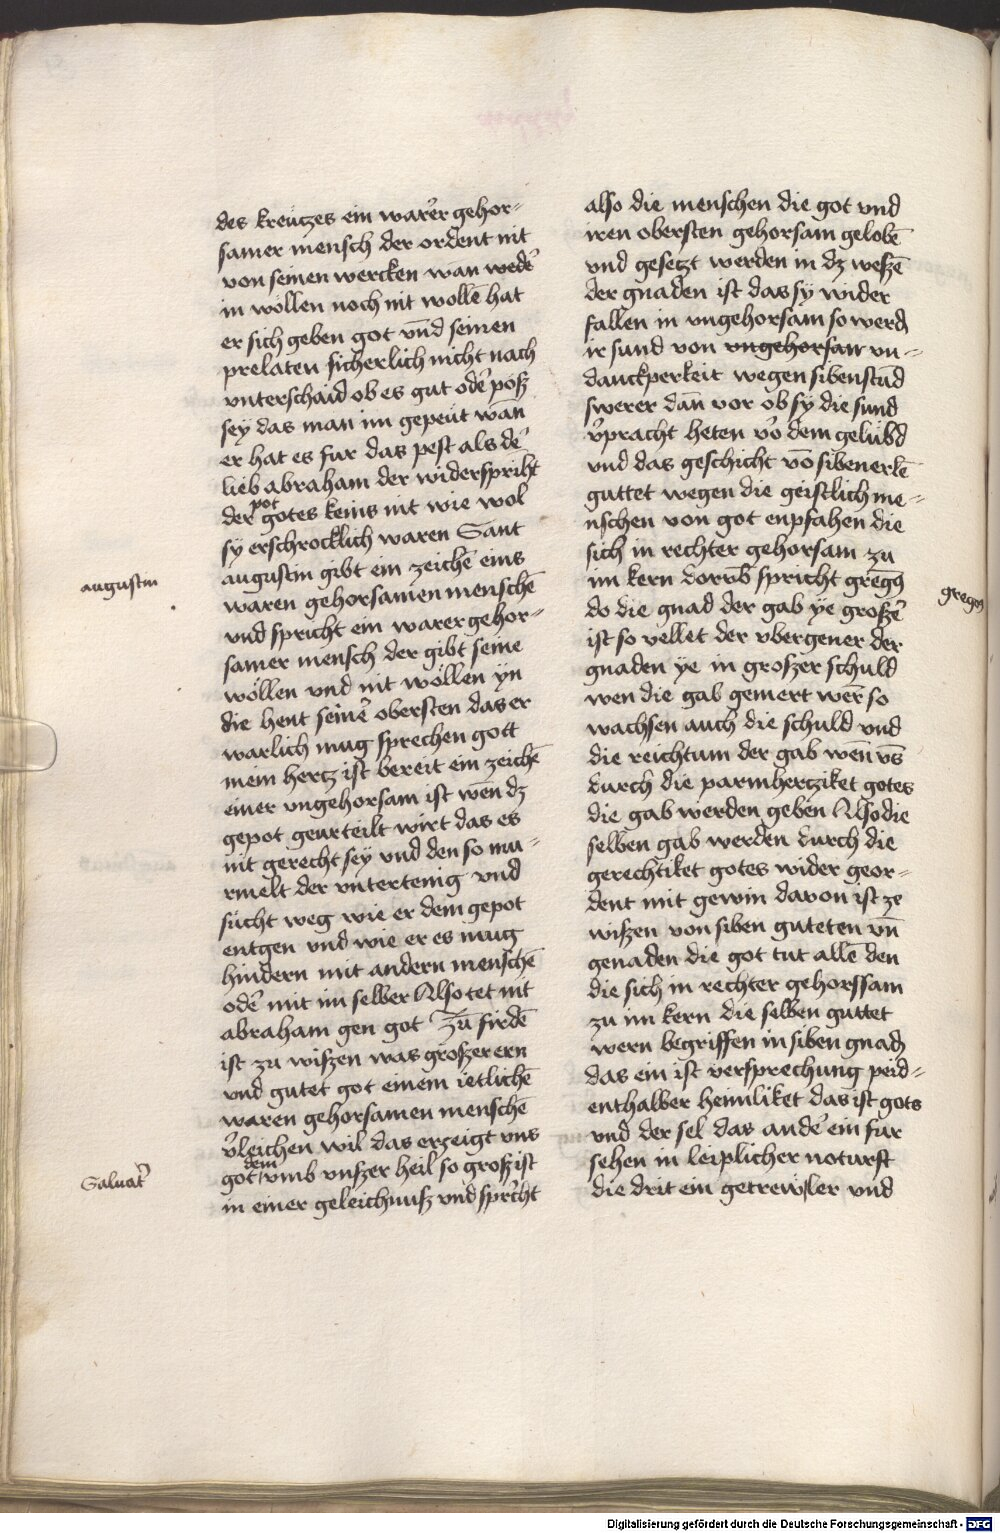 des kreüczes ein warer gehor-
samer mensch der ordent nit
von seinen wercken wan wedē
in wöllen noch nit wollē hat
er sich geben got vnd seinen
prelaten sicherlich nicht nach
vnterschaid ob es gut odē pösz
sey das man im gepeut wan
er hat es fur das pest als dē
lieb abraham der widerspriht
der pot gotes keins nit wie wol
sy erschrocklich waren Sant
augustin gibt ein zeichē eins
waren gehorsamen menschē
vnd spricht ein warer gehor-
samer mensch der gibt seine
wöllen vnd nit wöllen yn
die hent seinē obersten das er
warlich mug sprechen gott
mein hertz ist bereit ein zeichē
einer vngehorsam ist wen dz
gepot geurteilt wirt das es
nit gerecht sey vnd den so mu-
rmelt der vntertenig vnd
sücht weg wie er dem gepot
entgen vnd wie er es mug
hindern mit andern menschē
odē mit im selber Also tet nit
abraham gen got Zū firdē
ist zu wiszen was groszer ern
vnd gutet got einem ietlichē
waren gehorsamen menschē
v̄leichen wil das erzeigt vns
got dem vmb vnszer heil so grosz ist
in einer geleichnusz vnd spricht
augustin
Saluat̄
also die menschen die got vnd
iren obersten gehorsam gelobē
vnd gesetzt werden in dz weszē
der gnaden ist das sy wider
fallen in vngehorsam so werdn
ir sund von vngehorsam vn-
danckperkeit wegen sibenstūd
swerer dan vor ob sy die sund
v̄pracht heten vō dem gelübd
vnd das geschicht vō sibenerlē
guttet wegen die geistlich me-
nschen von got enpfahen die
sich in rechter gehorsam zu
im kern dorūb spricht gregꝰ
do die gnad der gab ye groszē
ist so vellet der vbergener der
gnaden ye in groszer schuld
wen die gab gemert wer̄ so
wachsen auch die schuld vnd
die reichtum der gab wen vs̄
durch die parmhercziket gotes
die gab werden geben Also die
selben gab werden durch die
gerechtiket gotes wider geor-
dent mit gewin davon ist ze
wiszen von siben guteten vn̄
genaden die got tut allē den
die sich in rechter gehorssam
zu im kern die selben guttet
wern begriffen in siben gnadn
das ein ist versprechung peid-
enthalber heimliket das ist gots
vnd der sel das andē ein fur
sehen in leiplicher noturft
die drit ein getrew ler vnd
gregꝰ
Digitalisierung gefördert durch die Deutsche Forschungsgemeinschaft - DFG